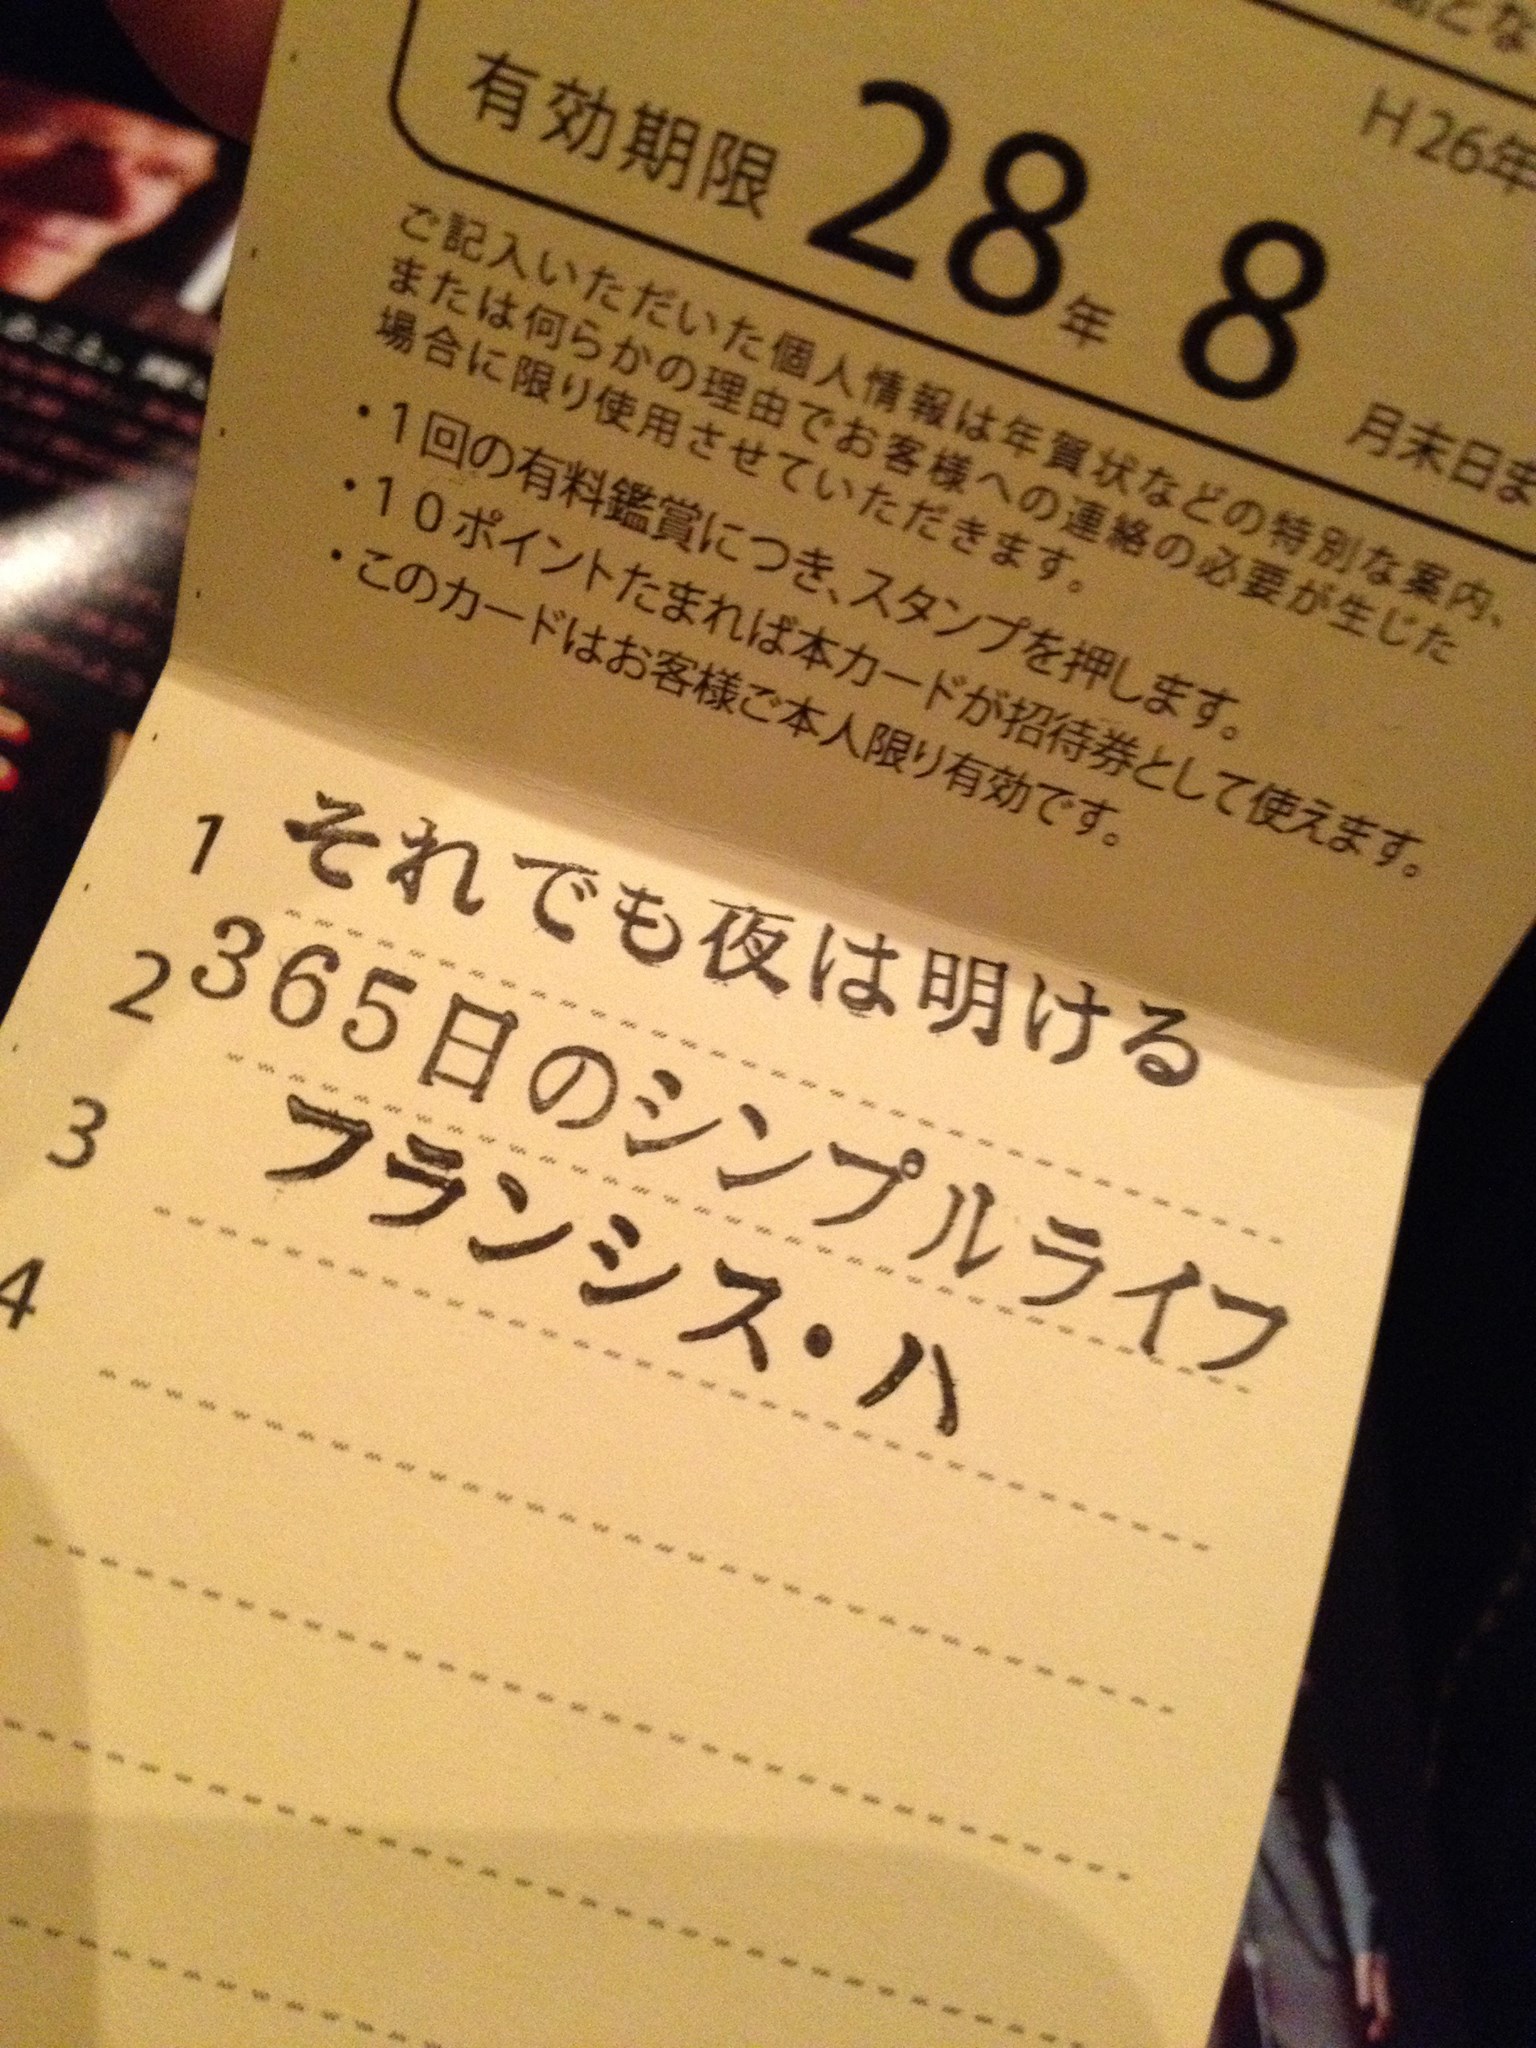 H26年
有効期限 28年 8 月末日ま
ご記入いただいた個人情報は年賀状などの特別な案内、
または何らかの理由でお客様への連絡の必要が生じた
場合に限り使用させていただきます。
・1回の有料鑑賞につき、スタンプを押します。
・10ポイントたまれば本カードが招待券として使えます。
・このカードはお客様ご本人限り有効です。
1 それでも夜は明ける
2 365日のシンプルライフ
3 フランシス・ハ
4